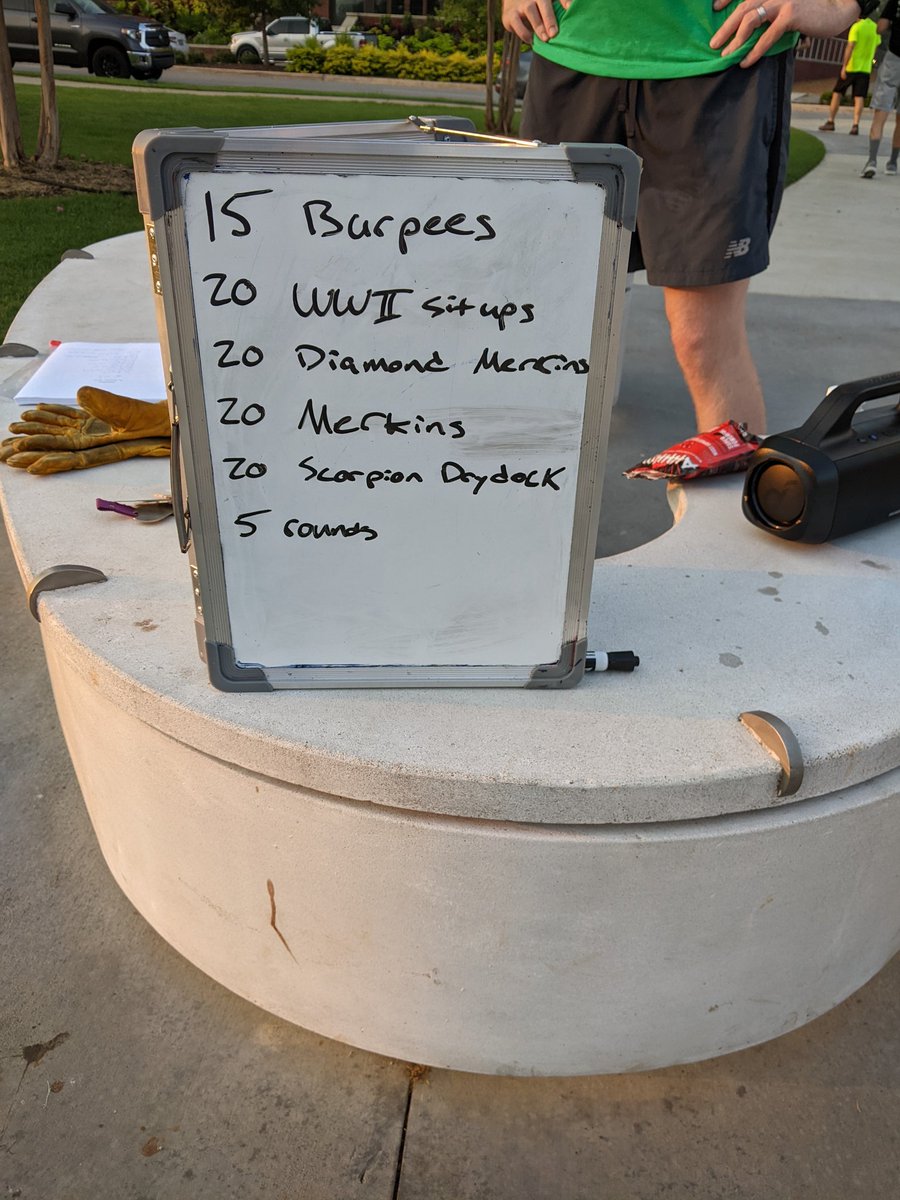 15 Burpees
20 WWII situps
20 Diamond Merkins
20 Merkins
20 Scorpion Drydock
5 rounds
NB